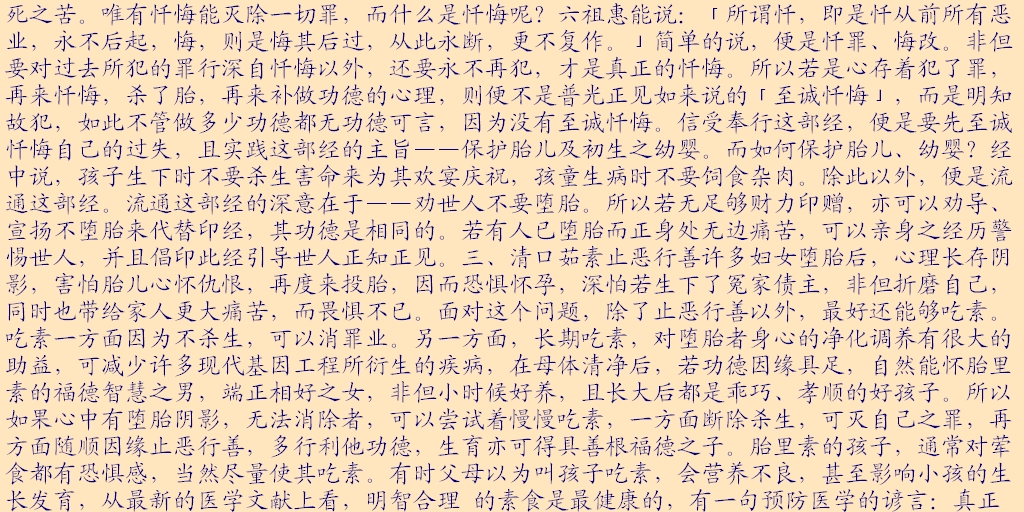 死之苦。唯有忏悔能灭除一切罪，而什么是忏悔呢？六祖惠能说：「所谓忏，即是忏从前所有恶
业，永不后起，悔，则是悔其后过，从此永断，更不复作。」简单的说，便是忏罪、悔改。非但
要对过去所犯的罪行深自忏悔以外，还要永不再犯，才是真正的忏悔。所以若是心存着犯了罪，
再来忏悔，杀了胎，再来补做功德的心理，则便不是普光正见如来说的「至诚忏悔」，而是明知
故犯，如此不管做多少功德都无功德可言，因为没有至诚忏悔。信受奉行这部经，便是要先至诚
忏悔自己的过失，且实践这部经的主旨——保护胎儿及初生之幼婴。而如何保护胎儿、幼婴？经
中说，孩子生下时不要杀生害命来为其欢宴庆祝，孩童生病时不要饲食杂肉。除此以外，便是流
通这部经。流通这部经的深意在于——劝世人不要堕胎。所以若无足够财力印赠，亦可以劝导、
宣扬不堕胎来代替印经，其功德是相同的。若有人已堕胎而正身处无边痛苦，可以亲身之经历警
惕世人，并且倡印此经引导世人正知正见。三、清口茹素止恶行善许多妇女堕胎后，心理长存阴
影，害怕胎儿心怀仇恨，再度来投胎，因而恐惧怀孕，深怕若生下了冤家债主，非但折磨自己，
同时也带给家人更大痛苦，而畏惧不已。面对这个问题，除了止恶行善以外，最好还能够吃素。
吃素一方面因为不杀生，可以消罪业。另一方面，长期吃素，对堕胎者身心的净化调养有很大的
助益，可减少许多现代基因工程所衍生的疾病，在母体清净后，若功德因缘具足，自然能怀胎里
素的福德智慧之男，端正相好之女，非但小时候好养，且长大后都是乖巧、孝顺的好孩子。所以
如果心中有堕胎阴影，无法消除者，可以尝试着慢慢吃素，一方面断除杀生，可灭自己之罪，再
方面随顺因缘止恶行善，多行利他功德，生育亦可得具善根福德之子。胎里素的孩子，通常对荤
食都有恐惧感，当然尽量使其吃素。有时父母以为叫孩子吃素，会营养不良，甚至影响小孩的生
长发育，从最新的医学文献上看，明智合理 的素食是最健康的，有一句预防医学的谚言：真正